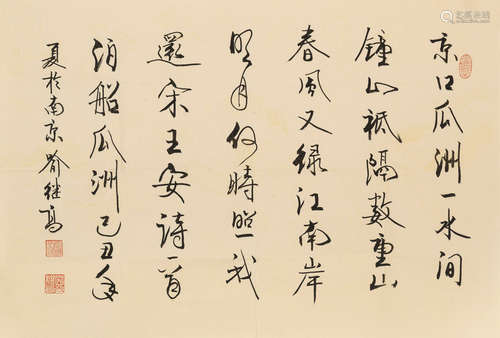 京口瓜洲一水间
鍾山祇隔数重山
春風又緑江南岸
明月何時照我
還宋王安詩一首
泊船瓜洲己丑年
夏於南京喻继高